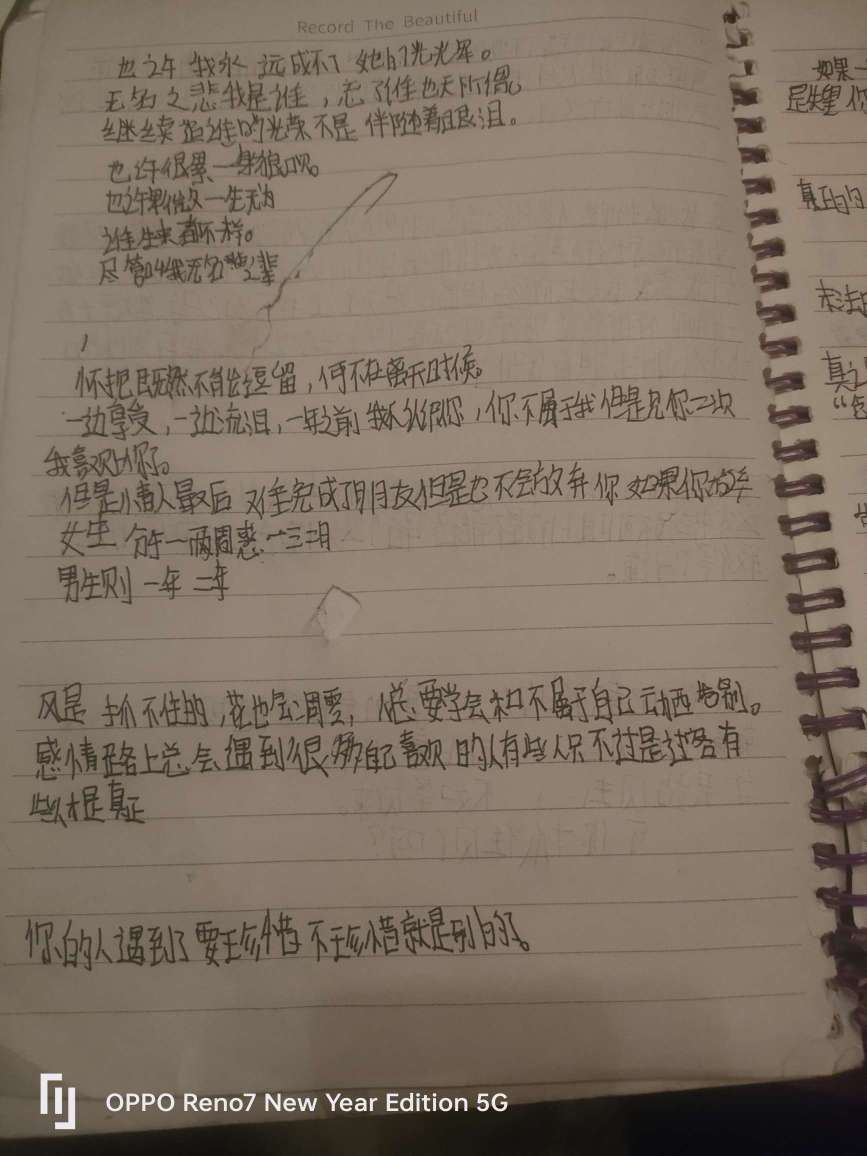 Record The Beautiful
也许我永远成不了她的光光晕。
无名之悲我是谁,忘了谁也无所谓
继续追谁的光荣不是伴随着眼泪。
也许很累一身狼狈。
也许卑微一生无为
谁生来都不一样。
尽管叫我无名之辈
怀抱既然不能逗留,何不在离开时候。
一边享受,一边流泪,一年之前我不认识你,你不属于我但是见你二次
我喜欢上你了。
但是情人最后难免完成了朋友但是也不会放弃你如果你放弃
女生 一两周 一三月
男生则一年 二年
风是抓不住的,花也会凋零,人总要学会和不属于自己动西告别。
感情路上总会遇到很多自己喜欢的人有些人只不过是过客有
些人才是真正
你的人遇到了要珍惜 不珍惜就是别的了。
如果
是失望 你
真的
未法
OPPO Reno7 New Year Edition 5G